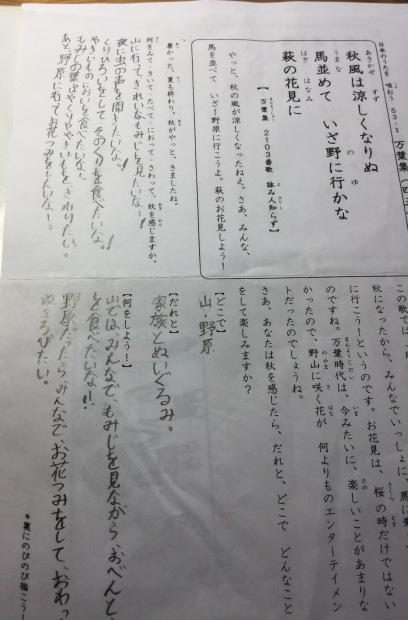 日本のうたを 唄おう 53-1 万葉集
秋風は涼しくなりぬ
馬並めて いざ野に行かな
萩の花見に
【 万葉集 2103番歌 詠み人知らず】
やっと、秋の風が涼しくなったねえ。さあ、みんな、
馬を並べて いざ!野原に行こうよ。萩のお花見しよう!
暑かった、夏も終わり。秋がやっと、きましたね。
何をみて・きいて・たべて・におって・さわって、秋を感じますか。
山に行って、きれいなもみじを見たいなー!
夜に虫の声を聞きたいな。
くりひろいをして、そのくりを食べたいな。
やきいも を食べたいな。
もみじの葉 やくりややきいもを、さわりたい。
あと、野原に行って、お花つみをしたいなー。
この歌では、
秋になったから、みんなでいっしょに、馬に
に行こう!というのです。お花見は、桜の時だけではない
のですね。万葉時代は、今みたいに、楽しいことがあまりな
かったので、野山に咲く花が 何よりものエンターテイメン
トだったのでしょうね。
さあ、あなたは秋を感じたら、だれと、どこで どんなこと
をして楽しみますか?
【どこで】
山・野原
【だれと】
家族とぬいぐるみ。
【何をしよう!】
山では、みんなで、もみじを見ながら、おべんと、
を食べたいな!!
野原だったら、みんなで、お花つみをして、おわっ
ねころびたい。
*裏にのびのび描こう!